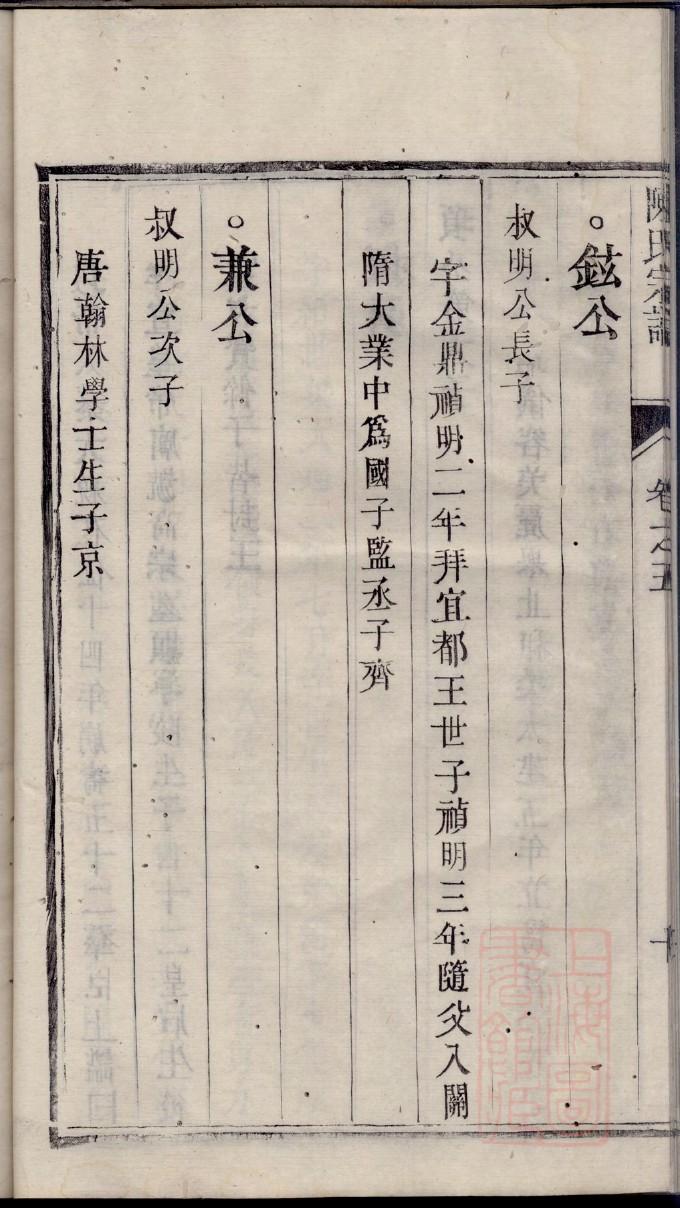 陳氏宗譜 卷之五 十
○鉉公
叔明公長子
字金鼎禎明二年拜宜都王世子禎明三年隨父入關
隋大業中為國子監丞子齊
○兼公
叔明公次子
唐翰林學士生子京